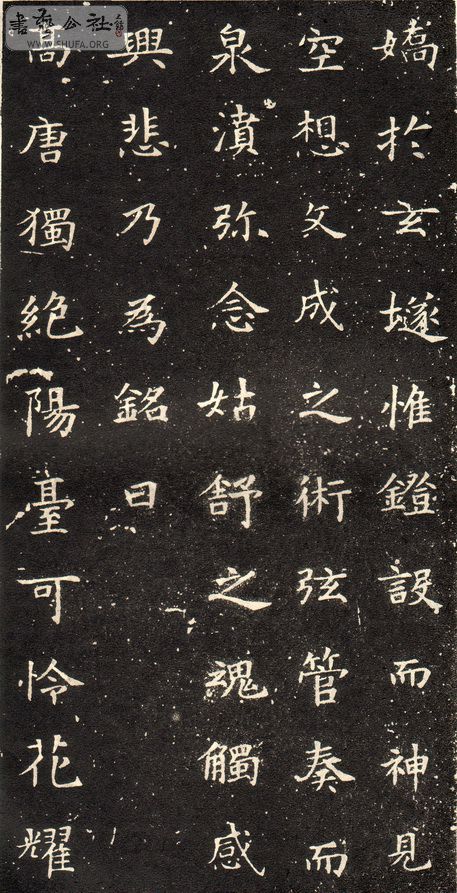 嬌於玄墜惟鐙設而神見
空想文成之術弦管奏而
泉濆弥念姑舒之魂觸感
興悲乃為銘曰
高唐獨絶陽臺可怜花耀
書藝公社
WWW.SHUFA.ORG